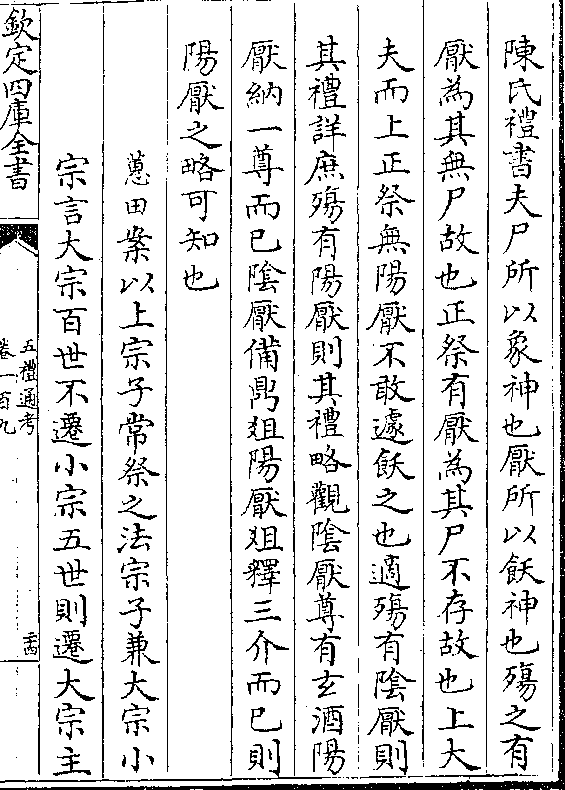 陳氏禮書夫尸所以象神也厭所以飫神也殤之有
厭為其無尸故也正祭有厭為其尸不存故也上大
夫而上正祭無陽厭不敢遽飫之也適殤有陰厭則
其禮詳庶殤有陽厭則其禮略觀陰厭尊有玄酒陽
厭納一尊而已陰厭備鼎俎陽厭俎釋三介而已則
陽厭之略可知也
蕙田案以上宗子常祭之法宗子兼大宗小
宗言大宗百世不遷小宗五世則遷大宗主
欽定四庫全書
五禮通考
卷一百九